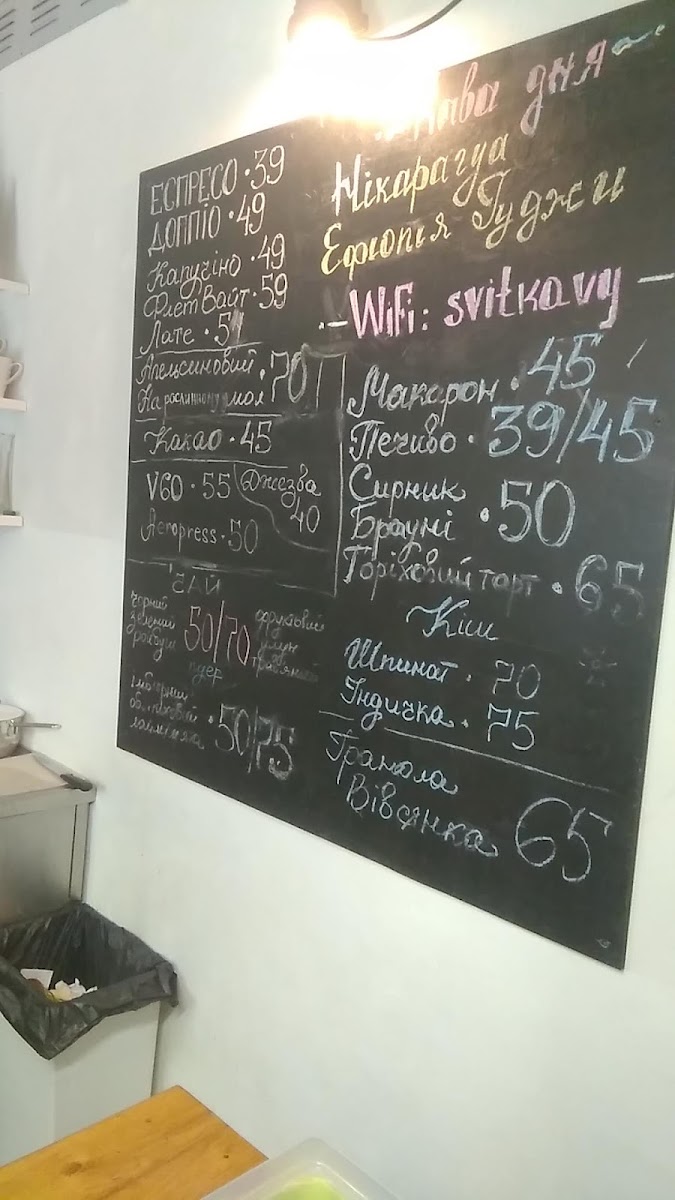 ЕСПРЕСО · 39
ДОППІО · 49
Капучіно · 49
Флет Вайт · 59
Лате ·
Апельсиновий
На рослинному мол · 70
Какао · 45
V60 · 55
Джезва
40
Aeropress · 50
ЧАЙ
Чорний
зелений
ройбуш
50/70
пуер
фруктовий
улун
трав'яний
Імбирний
обліпиховий
· 50/75
Кава дня
Нікарагуа
Ефіопія Гуджи
WiFi: svitkavy
Макарон · 45
Печиво · 39/45
Сирник
Брауні · 50
Горіховий торт · 65
Кіш
Шпинат · 70
Індичка · 75
Гранола
Вівсянка 65